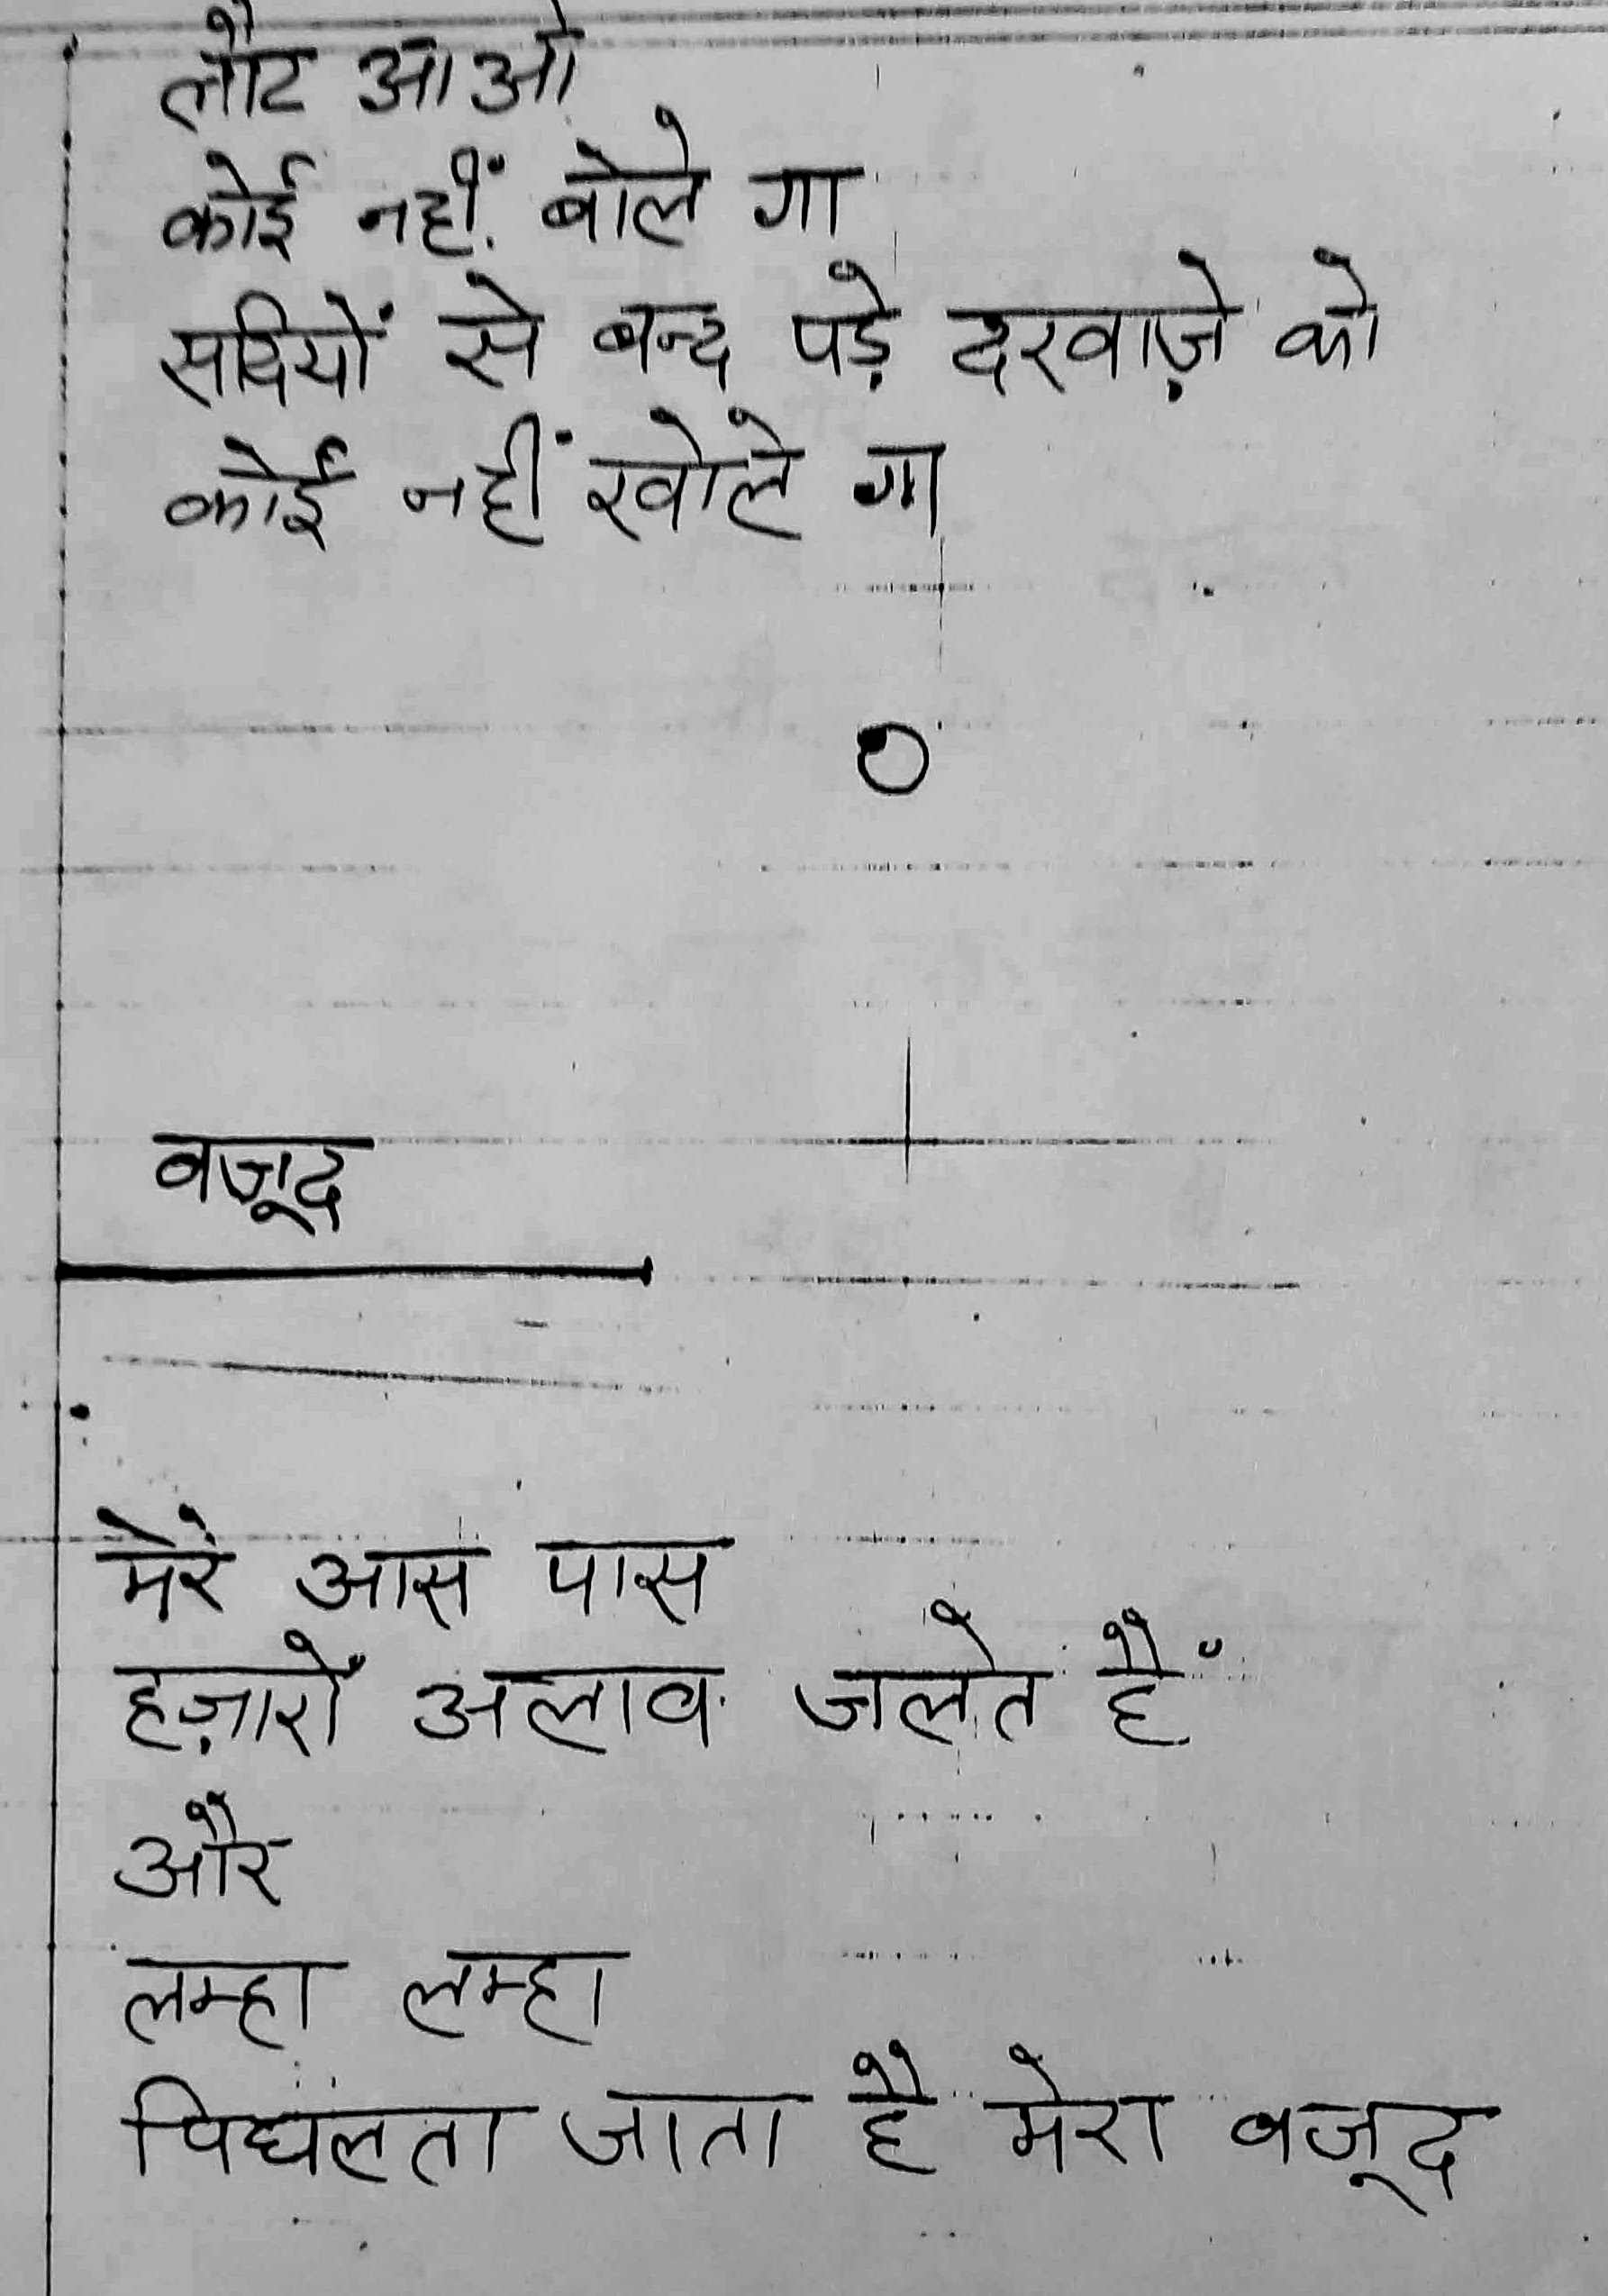 लौट आओ
कोई नहीं बोले गा
सदियों से बन्द पड़े दरवाज़े को
कोई नहीं खोले गा
वजूद
मेरे आस पास
हज़ारों अलाव जलते हैं
और
लम्हा लम्हा
पिघलता जाता है मेरा वजूद